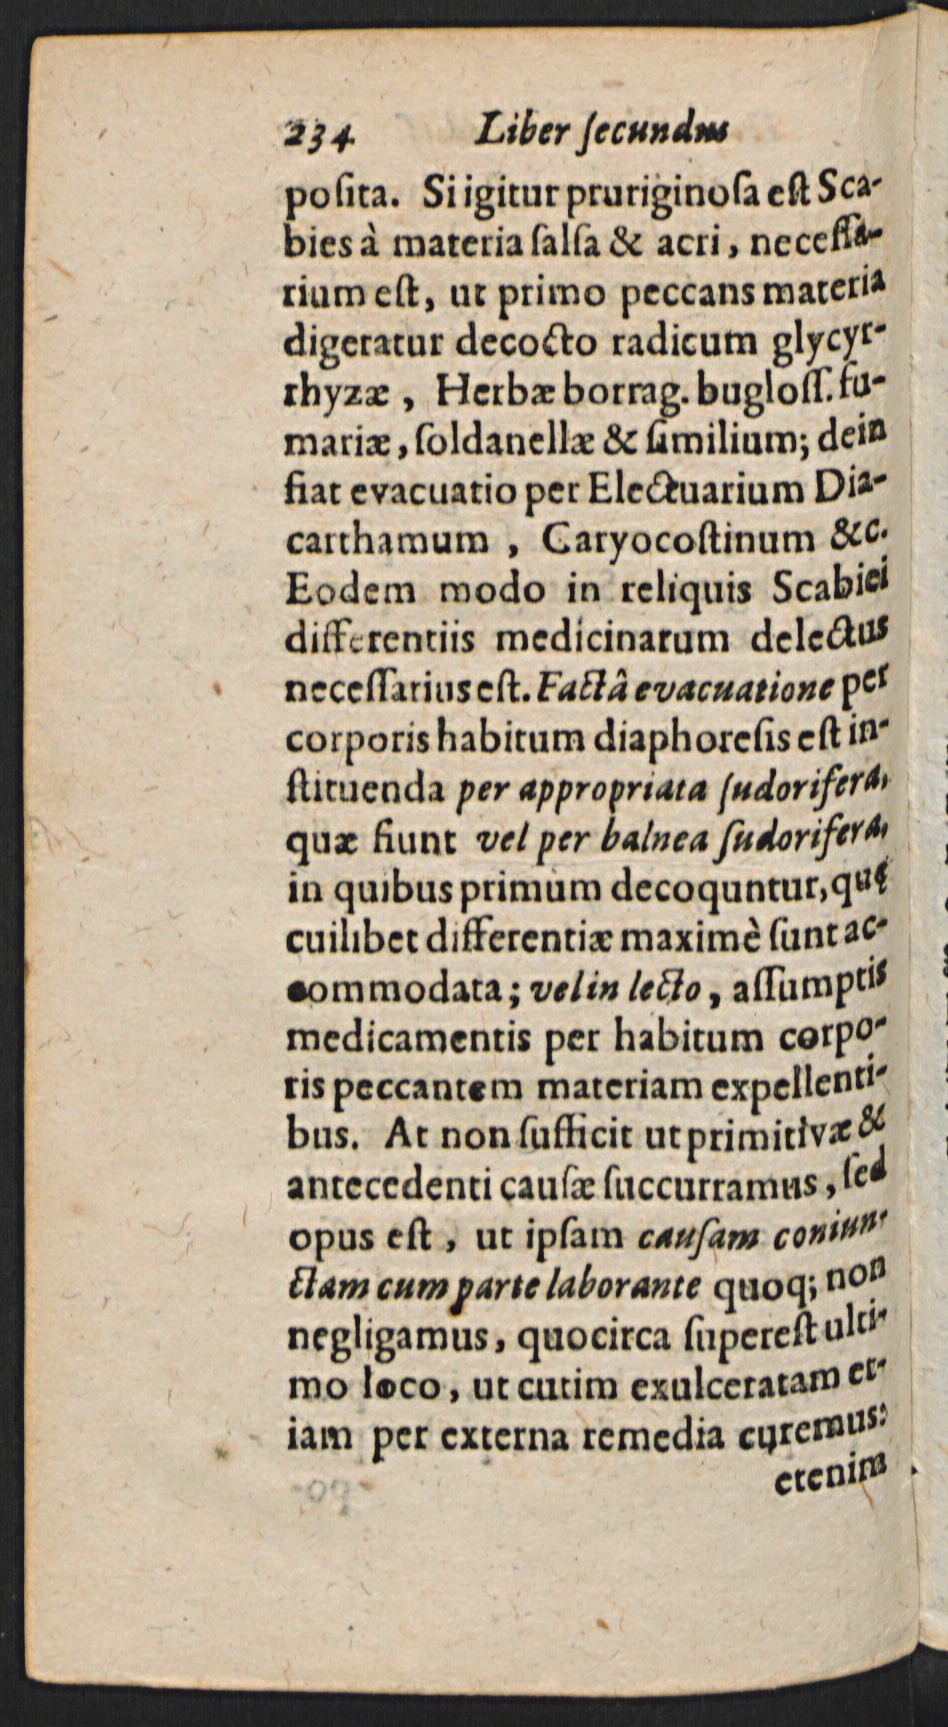 234 Liber ſecundus
poſita. Si igitur pruriginoſa eſt Sca-
bies à materia ſalſa & acri, neceſſa-
rium eſt, ut primo peccans materia
digeratur decocto radicum glycyr-
rhyzæ, Herbæ borrag. bugloſſ. fu-
mariæ, ſoldanellæ & ſimilium; dein
fiat evacuatio per Electuarium Dia-
carthamum, Caryocoſtinum &c.
Eodem modo in reliquis Scabiei
differentiis medicinarum delectus
neceſſarius eſt. Factâ evacuatione per
corporis habitum diaphoreſis eſt in-
ſtituenda per appropriata ſudorifera,
quæ fiunt vel per balnea ſudorifera,
in quibus primùm decoquntur, quę
cuilibet differentiæ maximè ſunt ac-
commodata; vel in lecto, aſſumptis
medicamentis per habitum corpo-
ris peccantem materiam expellenti-
bus. At non ſufficit ut primitivæ &
antecedenti cauſæ ſuccurramus, ſed
opus eſt, ut ipſam cauſam coniun-
ctam cum parte laborante quoq; non
negligamus, quocirca ſupereſt ulti-
mo loco, ut cutim exulceratam et-
iam per externa remedia curemus:
etenim